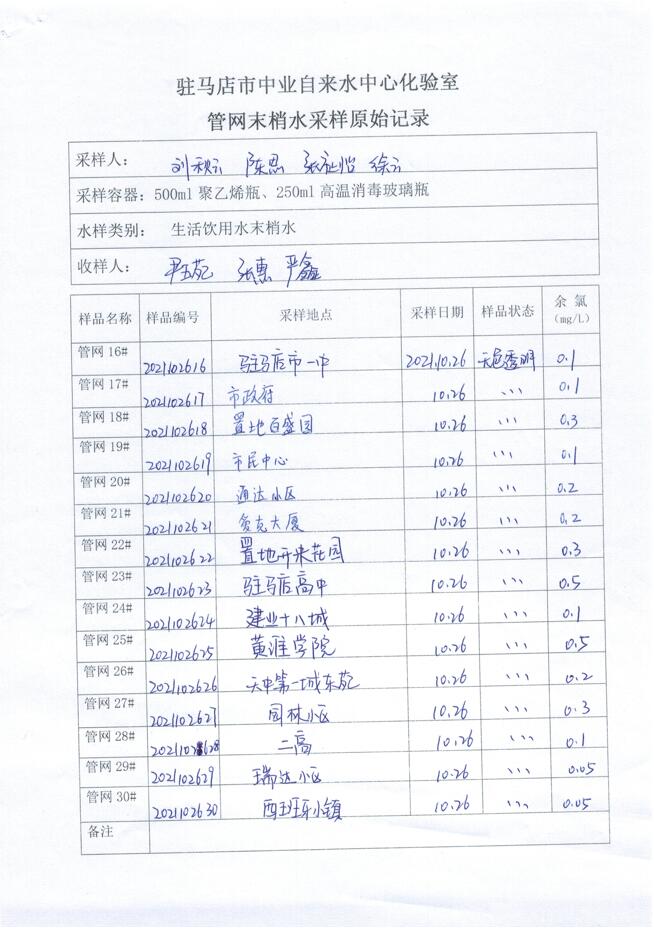 驻马店市中业自来水中心化验室
管网末梢水采样原始记录
采样人： 刘秋云 陈思 徐云
采样容器：500ml 聚乙烯瓶、250ml 高温消毒玻璃瓶
水样类别： 生活饮用水末梢水
收样人： 尹玉苑 张惠 严鑫
样品名称 样品编号 采样地点 采样日期 样品状态 余 氯
（mg/L）
管网 16# 2021102616 驻马店市一中 2021.10.26 无色透明 0.1
管网 17# 2021102617 市政府 10.26 ､､､ 0.1
管网 18# 2021102618 置地百盛园 10.26 ､､､ 0.3
管网 19# 2021102619 市民中心 10.26 ､､､ 0.1
管网 20# 2021102620 通达小区 10.26 ､､､ 0.2
管网 21# 2021102621 大厦 10.26 ､､､ 0.2
管网 22# 2021102622 置地开来花园 10.26 ､､､ 0.3
管网 23# 2021102623 驻马店高中 10.26 ､､､ 0.5
管网 24# 2021102624 建业十八城 10.26 ､､､ 0.1
管网 25# 2021102625 黄淮学院 10.26 ､､､ 0.5
管网 26# 2021102626 天中第一城东苑 10.26 ､､､ 0.2
管网 27# 2021102627 园林小区 10.26 ､､､ 0.3
管网 28# 2021102628 二高 10.26 ､､､ 0.1
管网 29# 2021102629 瑞达小区 10.26 ､､､ 0.05
管网 30# 2021102630 西班牙小镇 10.26 ､､､ 0.05
备注